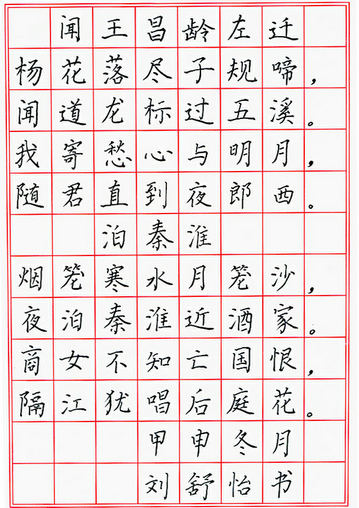 闻王昌龄左迁
杨花落尽子规啼，
闻道龙标过五溪。
我寄愁心与明月，
随君直到夜郎西。
泊秦淮
烟笼寒水月笼沙，
夜泊秦淮近酒家。
商女不知亡国恨，
隔江犹唱后庭花。
甲申冬月
刘舒怡书